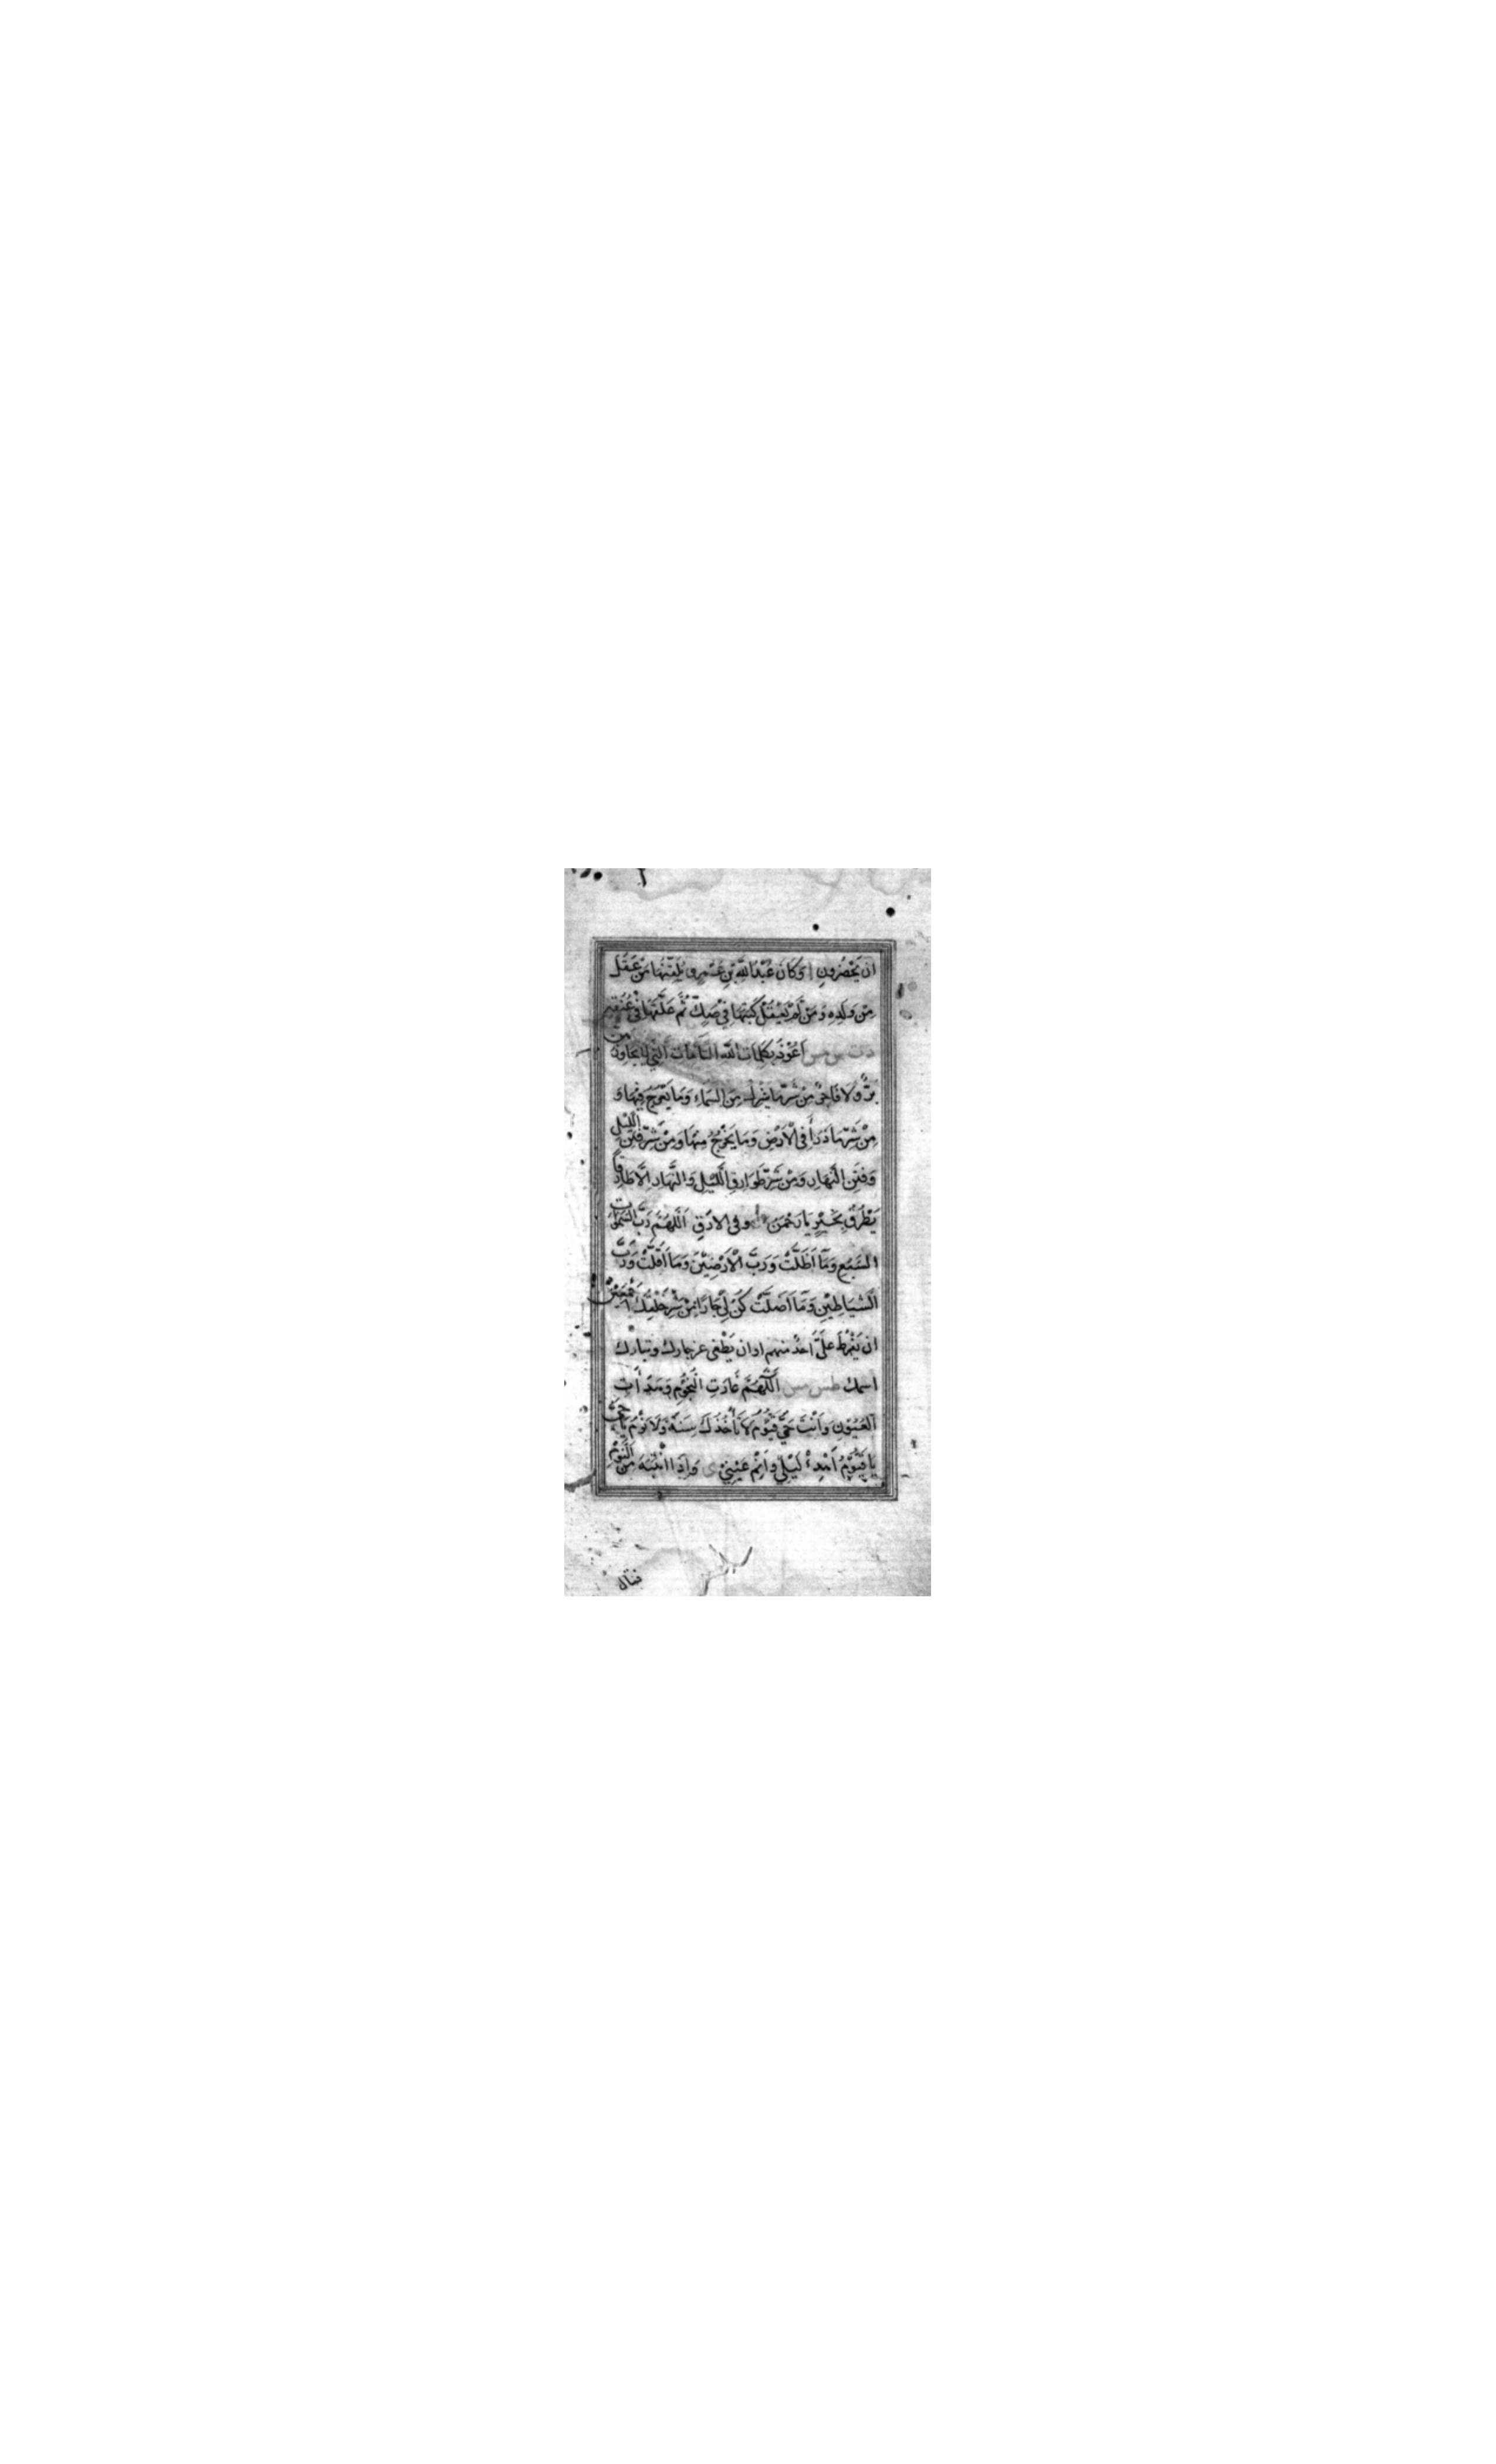 ان يَحْضُرُونِ وَكَانَ عَبْدُ اللّٰهِ بْنِ عَمْرٍو يُلَقِّنُهَا مَنْ عَقَلَ
مِنْ وَلَدِهِ وَمَنْ لَمْ يَعْقِلْ كَتَبَهَا فِيْ صَكٍّ ثُمَّ عَلَّقَهَا فِيْ عُنُقِهِ
دت س مس اَعُوْذُ بِكَلِمَاتِ اللّٰهِ التَّامَّاتِ الَّتِي لَا يُجَاوِزُهُنَّ
بَرٌّ وَلَا فَاجِرٌ مِنْ شَرِّ مَا يَنْزِلُ مِنَ السَّمَاءِ وَمَا يَعْرُجُ فِيْهَا وَ
مِنْ شَرِّ مَا ذَرَأَ فِي الْاَرْضِ وَمَا يَخْرُجُ مِنْهَا وَمِنْ شَرِّ فِتَنِ اللَّيْلِ
وَفِتَنِ النَّهَارِ وَمِنْ شَرِّ طَوَارِقِ اللَّيْلِ وَالنَّهَارِ اِلَّا طَارِقًا
يَطْرُقُ بِخَيْرٍ يَا رَحْمٰنُ وفي الارق اَللّٰهُمَّ رَبَّ السَّمٰوَاتِ
السَّبْعِ وَمَا اَظَلَّتْ وَرَبَّ الْاَرَضِيْنَ وَمَا اَقَلَّتْ وَرَبَّ
الشَّيَاطِيْنِ وَمَا اَضَلَّتْ كُنْ لِيْ جَارًا مِنْ شَرِّ خَلْقِكَ اَجْمَعِيْنَ
ان يَفْرُطَ عَلَيَّ اَحَدٌ منهم اوان يَطْغٰى عز جارك وتبارك
اسمك طس مص اَللّٰهُمَّ غَارَتِ النُّجُوْمُ وَهَدَأَتِ
الْعُيُوْنُ وَاَنْتَ حَيٌّ قَيُّوْمٌ لَا تَأْخُذُكَ سِنَةٌ وَلَا نَوْمٌ يَا حَيُّ
يَا قَيُّوْمُ اَهْدِءْ لَيْلِيْ وَاَنِمْ عَيْنِيْ ى وَاِذَا انْتَبَهَ مِنَ النَّوْمِ
فقال